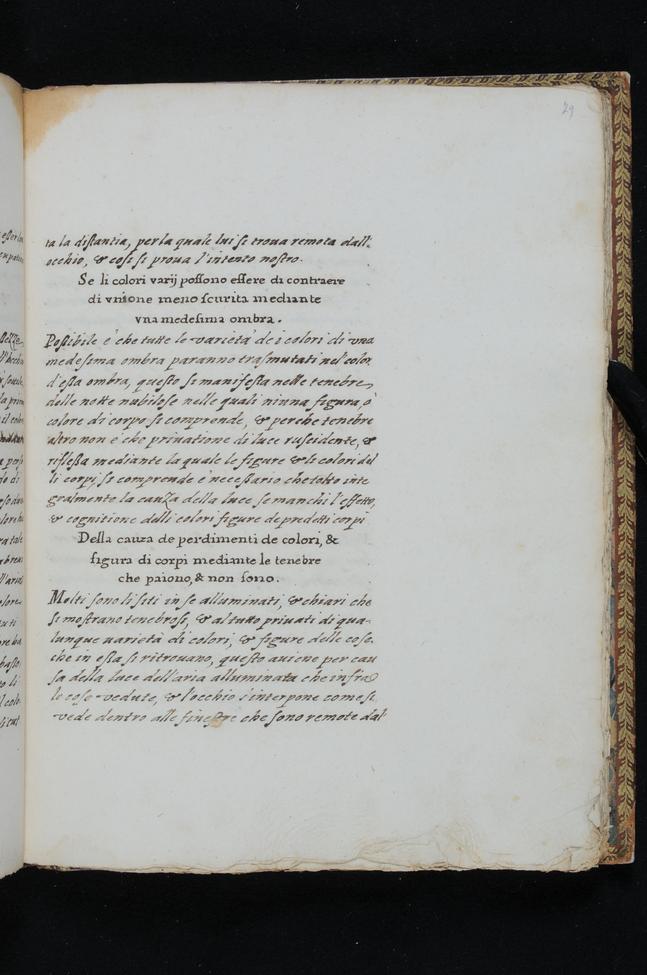 29
ta la distantia, per la quale lui si trova remota dall'
occhio, & cosi si prova l'intento nostro.
Se li colori varij possono essere di contraere
di vnsione meno scurita mediante
vna medesima ombra.
Possibile è che tutte le varietà de i colori di una
medesima ombra paranno trasmutati nel color
d'essa ombra, questo si manifesta nelle tenebre
delle notte nubilose nelle quali niuna figura, ò
colore di corpo si comprende, & perche tenebre
altro non è che privatione di luce &
riflessa mediante la quale le figure & li colori del
li corpi si comprende è necessario che tolto inte
gralmente la cauza della luce se manchi l'effetto,
& cognitione delli colori figure de predetti corpi
Della cauza de perdimenti de colori, &
figura di corpi mediante le tenebre
che paiono, & non sono.
Molti sono li siti in se alluminati, & chiari che
si mostrano tenebrosi, & al tutto privati di qua-
lunque varietà di colori, & figure delle cose.
che in essa si ritrovano, questo aviene per cau
sa della luce dell'aria alluminata che infra
le cose vedute, & l'occhio s'interpone come si
vede dentro alle finestre che sono remote dal